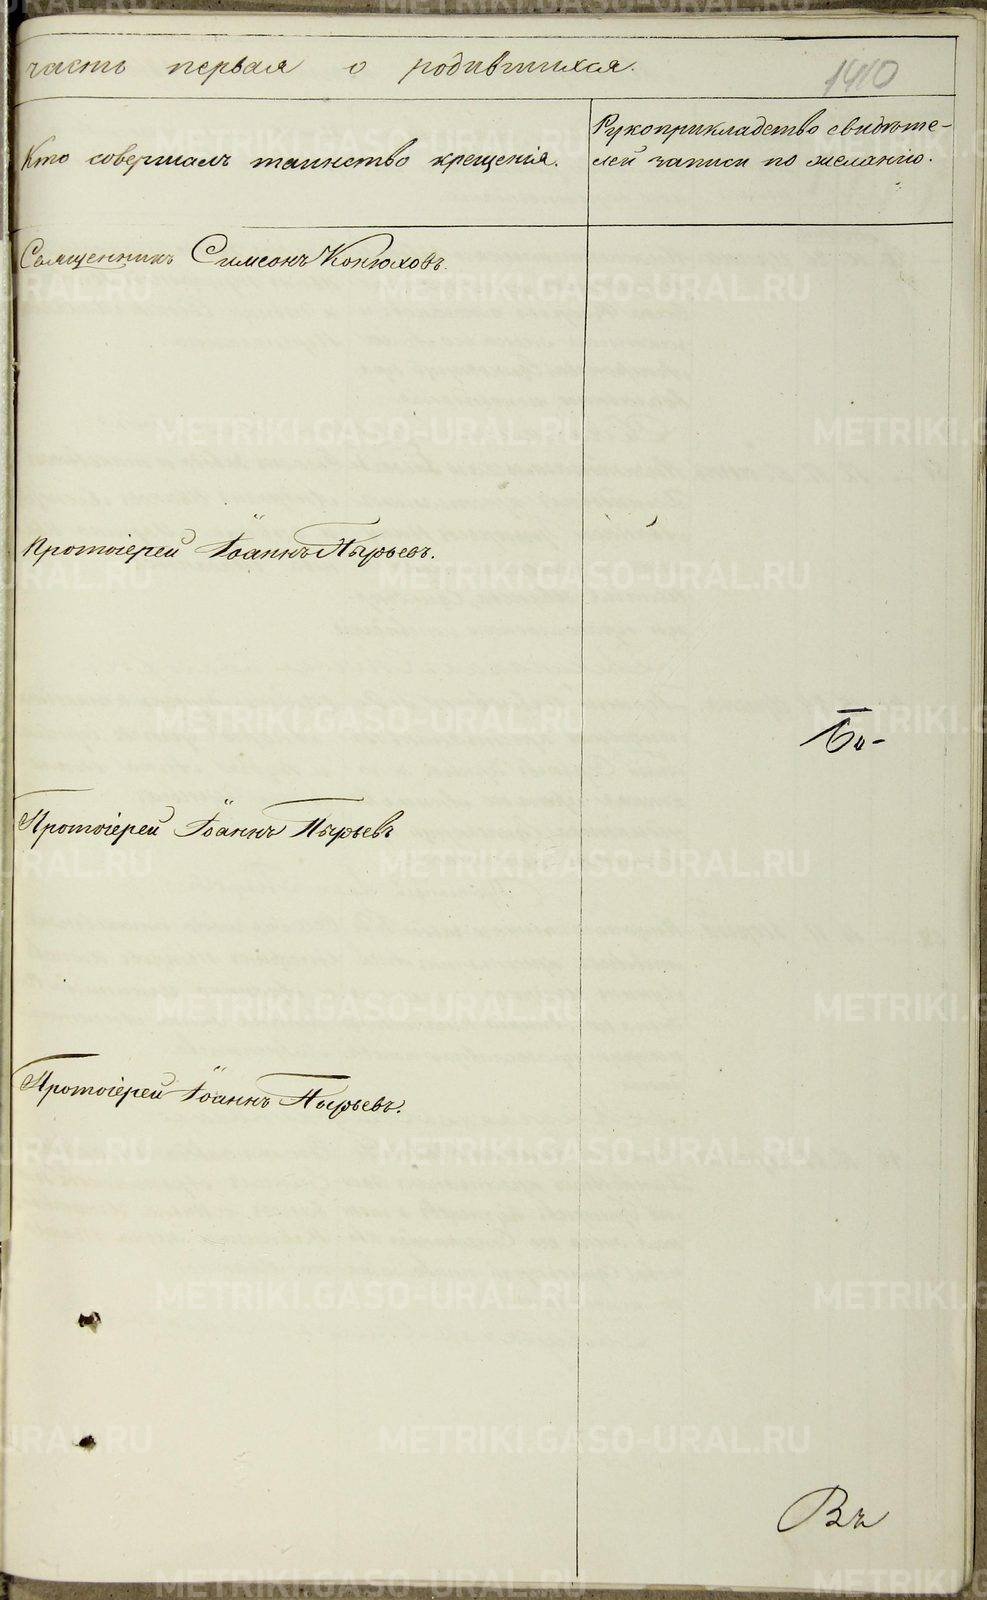 часть первая о родившихся.
1410
Кто совершалъ таинство крещенія.
Рукоприкладство свидѣте-
лей записи по желанію.
Священникъ Симеонъ Конюховъ.
Протоіерей Іоаннъ Пырьевъ.
Протоіерей Іоаннъ Пырьевъ
Протоіерей Іоаннъ Пырьевъ.
Въ
METRIKI.GASO-URAL.RU